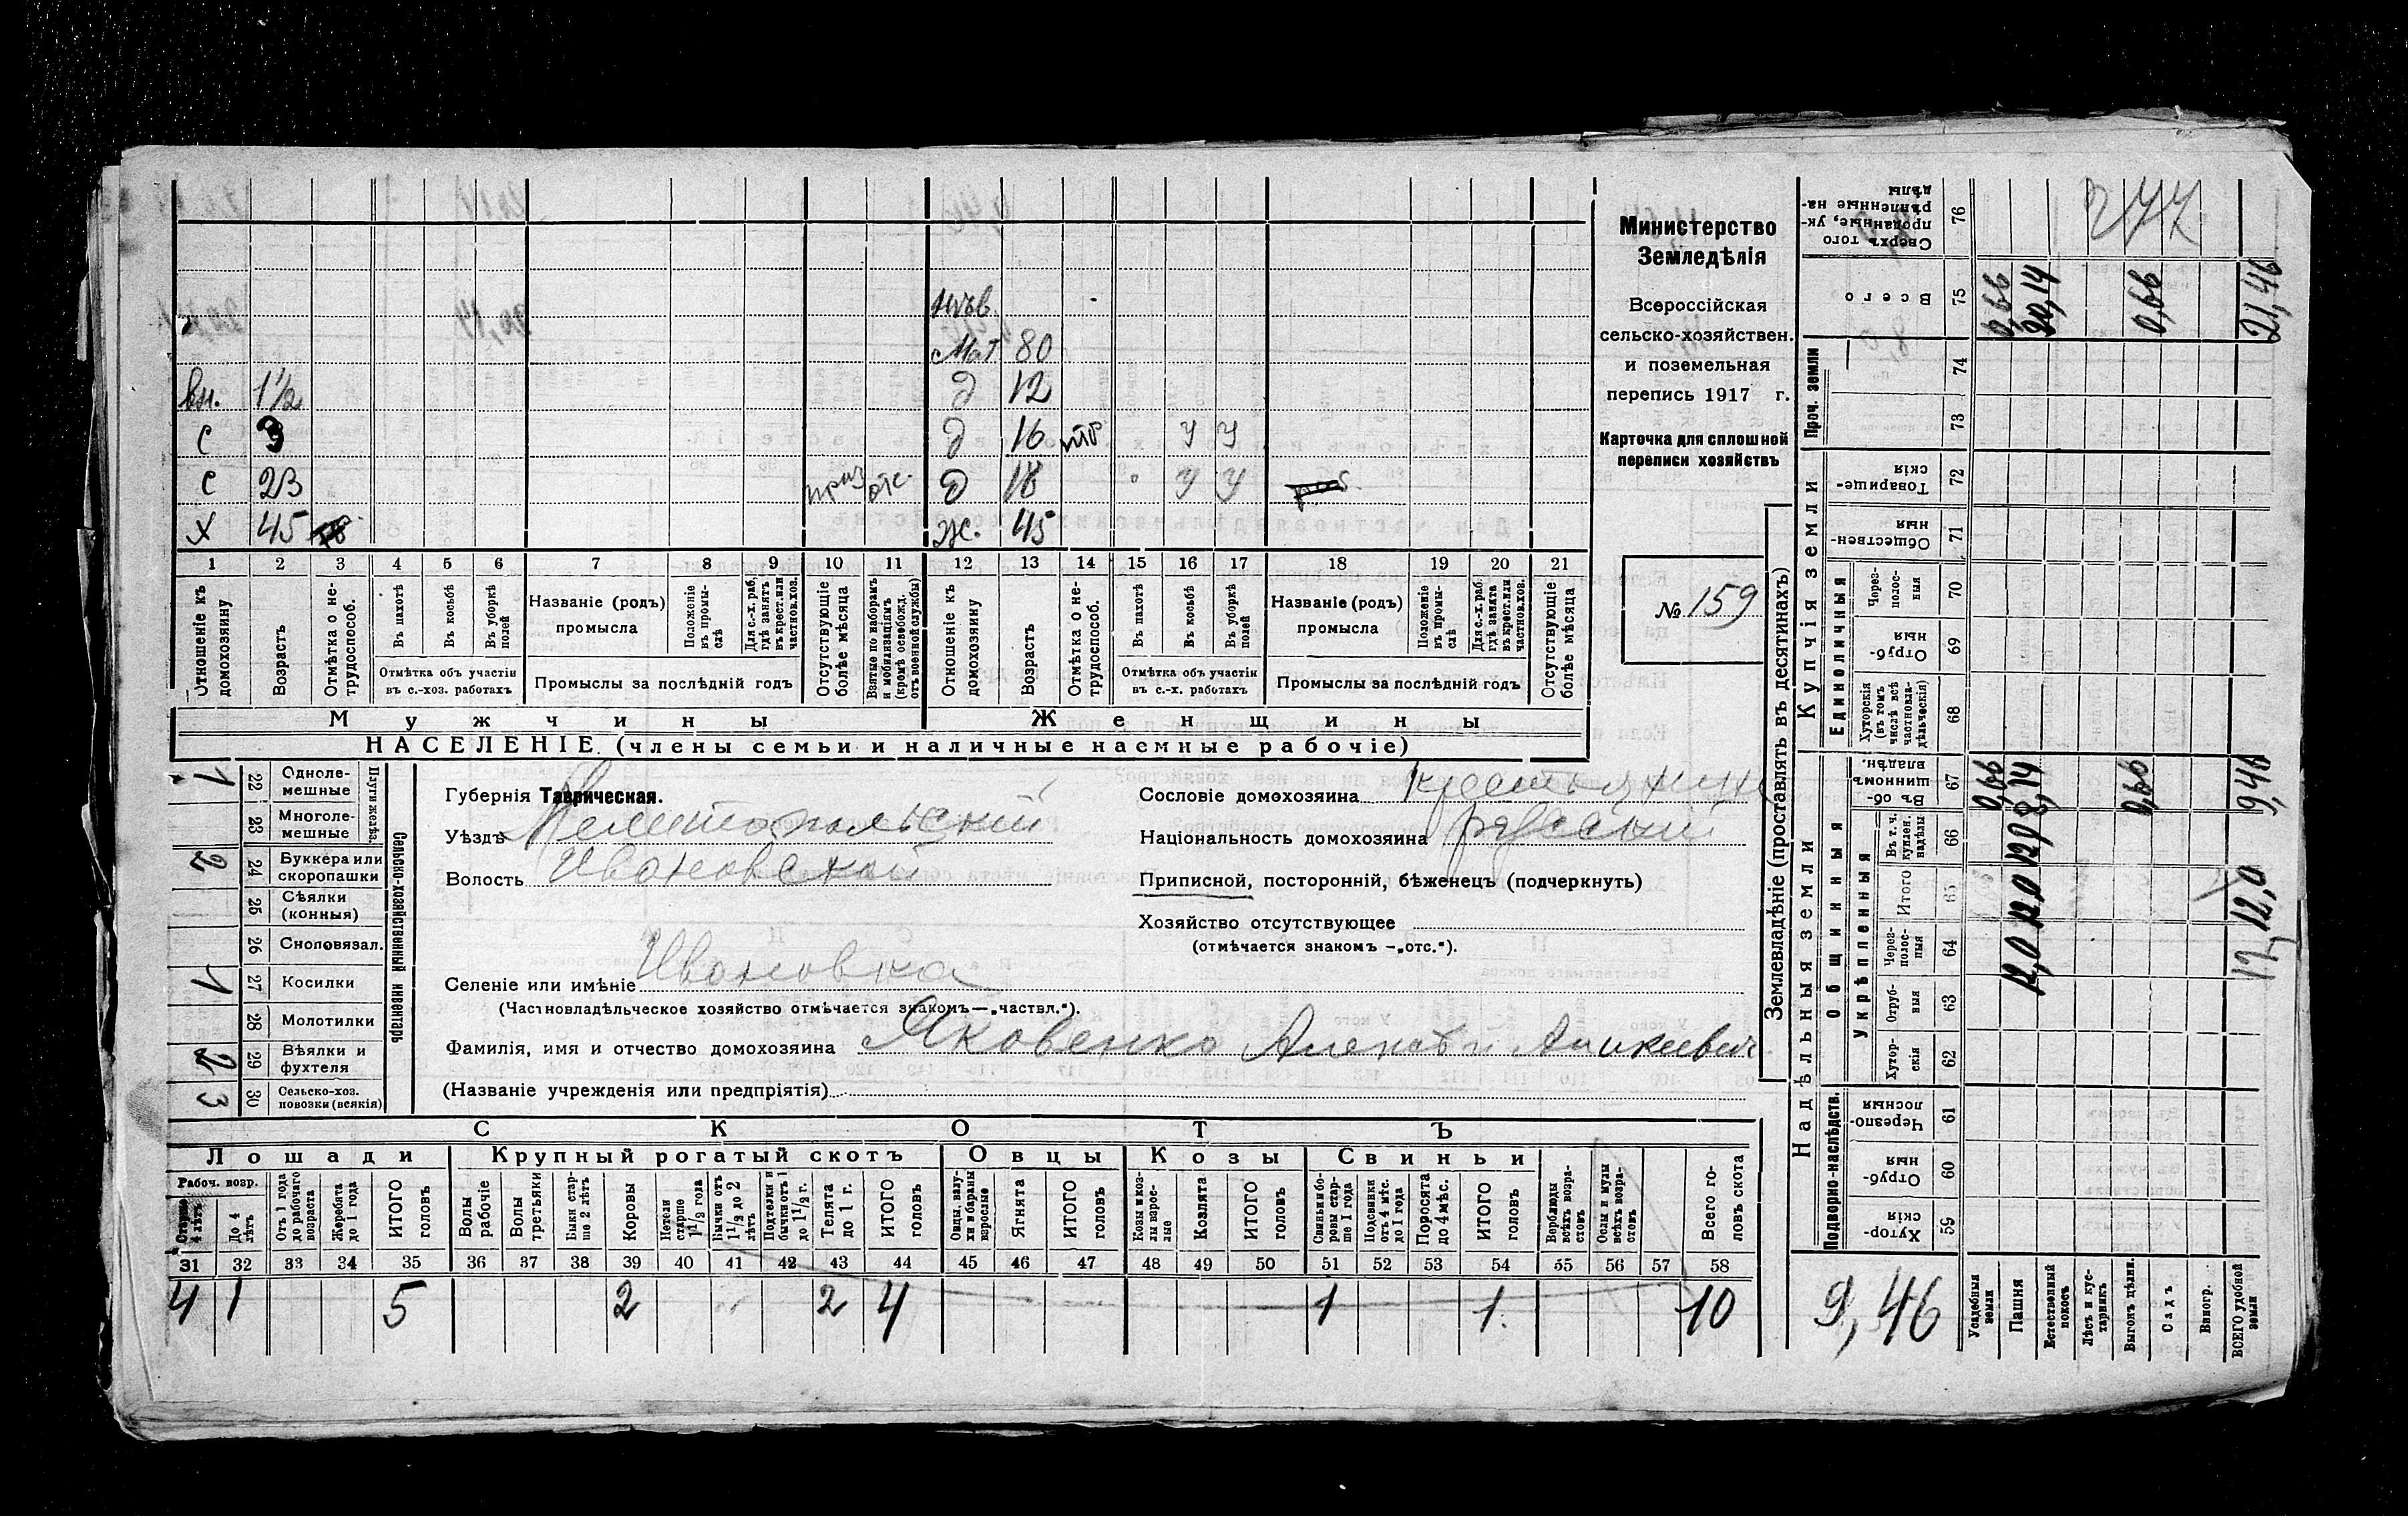 Министерство
Земледѣлія
Всероссійская
сельско-хозяйствен.
и поземельная
перепись 1917 г.
Карточка для сплошной
переписи хозяйствъ
№ 159
невѣ
мат 80
вн. 1½ д 12
с 3 д 16 У У
с 23 отс. д 18 У У
х 45 ж. 45
1 2 3 4 5 6 7 8 9 10 11 12 13 14 15 16 17 18 19 20 21
Отношеніе къ домохозяину
Возрастъ
Отмѣтка о не-трудоспособ.
Въ пахотѣ
Въ косьбѣ
Въ уборкѣ полей
Отмѣтка объ участіи въ с.-хоз. работахъ
Названіе (родъ) промысла
Положеніе въ промы-слѣ
Для с.-х. раб. гдѣ занятъ въ крест. или частновл. хоз.
Промыслы за послѣдній годъ
Отсутствующіе болѣе мѣсяца
Взятые по наборамъ и мобилизаціямъ (кромѣ освобожд. отъ военной службы)
Отношеніе къ домохозяину
Возрастъ
Отмѣтка о не-трудоспособ.
Въ пахотѣ
Въ косьбѣ
Въ уборкѣ полей
Отмѣтка объ участіи въ с.-х. работахъ
Названіе (родъ) промысла
Положеніе въ промы-слѣ
Для с.-х. раб. гдѣ занята въ крест. или частновл. хоз.
Промыслы за послѣдній годъ
Отсутствующіе болѣе мѣсяца
Мужчины Женщины
НАСЕЛЕНІЕ (члены семьи и наличные наемные рабочіе)
Сельско-хозяйственный инвентарь
Плуги желѣз.
Одноле-мешные 22 1
Многоле-мешные 23
Буккера или скоропашки 24 2
Сѣялки (конныя) 25
Сноповязал. 26
Косилки 27 1
Молотилки 28
Вѣялки и фухтеля 29 2
Сельско-хоз. повозки (всякія) 30 3
Губернія Таврическая.
Уѣздъ Мелитопольскій
Волость Ивановской
Селеніе или имѣніе Ивановка
(Частновладѣльческое хозяйство отмѣчается знакомъ—„частвл.“).
Фамилія, имя и отчество домохозяина Яковенко Алексѣй
(Названіе учрежденія или предпріятія)
Сословіе домохозяина крестьянинъ
Національность домохозяина русский
Приписной, посторонній, бѣженецъ (подчеркнуть)
Хозяйство отсутствующее
(отмѣчается знакомъ -„отс.“).
СКОТЪ
Лошади Крупный рогатый скотъ Овцы Козы Свиньи
Рабоч. возр.
Старше 4 лѣтъ
До 4 лѣтъ
Отъ 1 года до рабочаго возраста
Жеребята до 1 года
ИТОГО головъ
Волы рабочіе
Волы третьяки
Быки стар-ше 2 лѣтъ
Коровы
Нетели старше 1 1/2 года
Бычки отъ 1 1/2 до 2 лѣтъ
Подтелки и бычки отъ 1 до 1 1/2 г.
Телята до 1 г.
ИТОГО головъ
Овцы, валу-хи и бараны взрослые
Ягнята
ИТОГО головъ
Козы и коз-лы взрос-лые
Козлята
ИТОГО головъ
Свиньи и бо-ровы стар-ше 1 года
Подсвинки отъ 4 мѣс. до 1 года
Поросята до 4 мѣс.
ИТОГО головъ
Верблюды всѣхъ возра-стовъ
Ослы и мулы всѣхъ возра-стовъ
Всего го-ловъ скота
31 32 33 34 35 36 37 38 39 40 41 42 43 44 45 46 47 48 49 50 51 52 53 54 55 56 57 58
4 1 5 2 2 4 1 1. 10
Землевладѣніе (проставлять въ десятинахъ)
Сверхъ того проданные, ук-рѣпленные на-дѣлы 76 277
Всего 75 0,66 20,14 0,66 21,46
Проч. земли 74
73
Купчія земли
Товарище-скія 72
Обществен-ныя 71
Единоличныя
Через-полос-ныя 70
Отруб-ныя 69
Хуторскія (въ томъ числѣ всѣ частновла-дѣльческія) 68
Надѣльныя земли
Общинныя
Въ об-щинномъ владѣн. 67 0,66 8,14 0,66 9,46
Укрѣпленныя
Въ т. ч. куплен. надѣлы 66 12,0
Итого 65 12,0 12,0
Через-полос-ныя 64 12,0 12
Отруб-ныя 63
Хутор-скія 62
Подворно-наслѣдств.
Черезпо-лосныя 61
Отруб-ныя 60
Хутор-скія 59
9,46
Усадебныя земли
Пашня
Естественный покосъ
Лѣсъ и кус-тарникъ
Выгонъ цѣлин.
Садъ
Виногр.
ВСЕГО удобной земли